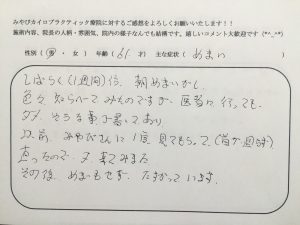 みやびカイロプラクティック療院に対するご感想をよろしくお願いいたします！！
施術内容、院長の人柄・雰囲気、院内の様子なんでも結構です。嬉しいコメント大歓迎です（*^_^*）
性別（男・女）年齢（61才）主な症状（めまい
しばらく（1週間）位、朝めまいがし
色々知らべてみたのですが、医者に行っても
ダメ そうる事が書いてあり
以前、みやびさんに1度見てもらって、（首が回らず）
直ったので 又、来てみました
その後、めまいもせず、たすかっています。